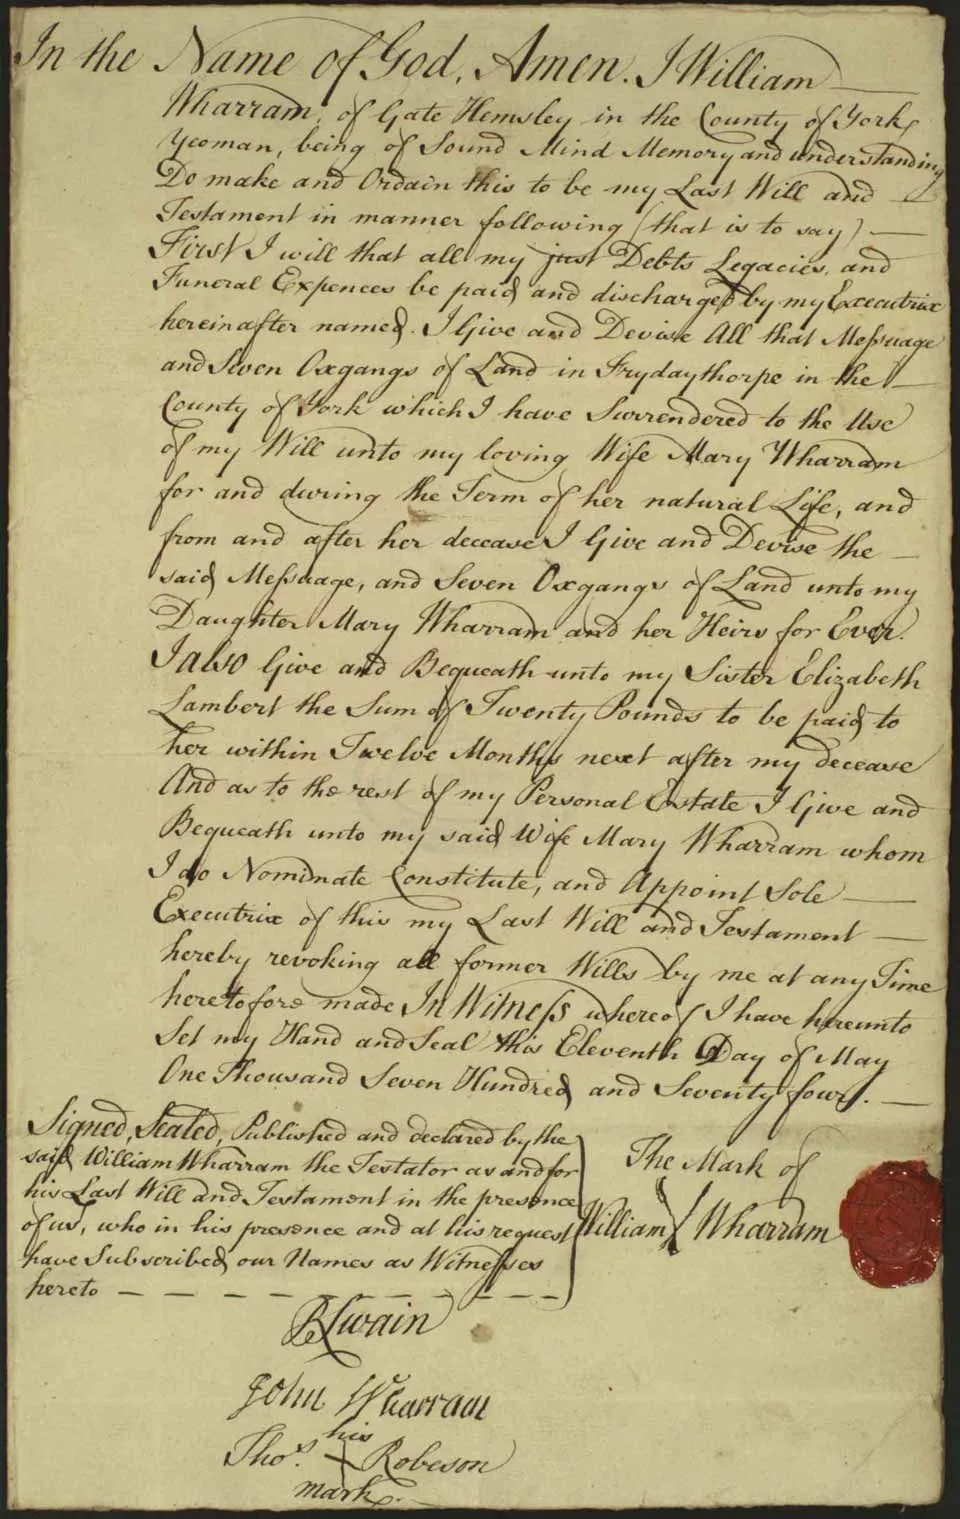 In the Name of God, Amen. I William
Wharram, of Gate Hemsley in the County of York,
Yeoman, being of Sound Mind Memory and understanding
Do make and Ordain this to be my Last Will and
Testament in manner following (that is to say)
First I will that all my just Debts Legacies, and
Funeral Expences be paid and discharged by my Executrix
hereinafter named. I Give and Devise All that Messuage
and Seven Oxgangs of Land in Frydaythorpe in the
County of York which I have Surrendered to the Use
of my Will unto my loving Wife Mary Wharram
for and during the Term of her natural Life, and
from and after her decease I Give and Devise the
said Messuage, and Seven Oxgangs of Land unto my
Daughter Mary Wharram and her Heirs for Ever.
I also Give and Bequeath unto my Sister Elizabeth
Lambert the Sum of Twenty Pounds to be paid to
her within Twelve Months next after my decease
And as to the rest of my Personal Estate I Give and
Bequeath unto my said Wife Mary Wharram whom
I do Nominate Constitute, and Appoint Sole
Executrix of this my Last Will and Testament
hereby revoking all former Wills by me at any Time
heretofore made In Witness whereof I have hereunto
Set my Hand and Seal this Eleventh Day of May
One Thousand Seven Hundred and Seventy four.
Signed, Sealed, Published and declared by the
said William Wharram the Testator as and for
his Last Will and Testament in the presence
of us, who in his presence and at his request
have Subscribed our Names as Witnesses
hereto
The Mark of
William Wharram
R Swain
John Wharram
his
Thos. Robeson
mark.